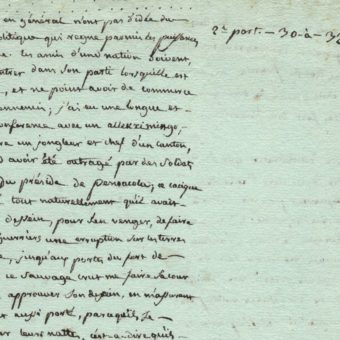 en général n'ont pas d'idée du
politique qui regne parmi les puissances
les amis d'une nation doivent,
entrer dans son parti lorsqu'elle est
, et ne point avoir de commerce
ennemis; j'ai eu une longue et
conférence avec un allekximingo,
un jongleur et chef d'un canton,
avoir été outragé par des Soldats
du préside de pensacola; ce cacique
tout naturellement qu'il avait
dessein, pour s'en venger, de faire
guerriers une erruption sur les terres
, jusqu'aux portes du fort de
ce Sauvage crut me faire sa cour
approuver son dessein, en m'assurant
aussi porté, parcequ'ils se
leurs nattes, c'est-a-dire qu'ils
2e part. - 30-à-3